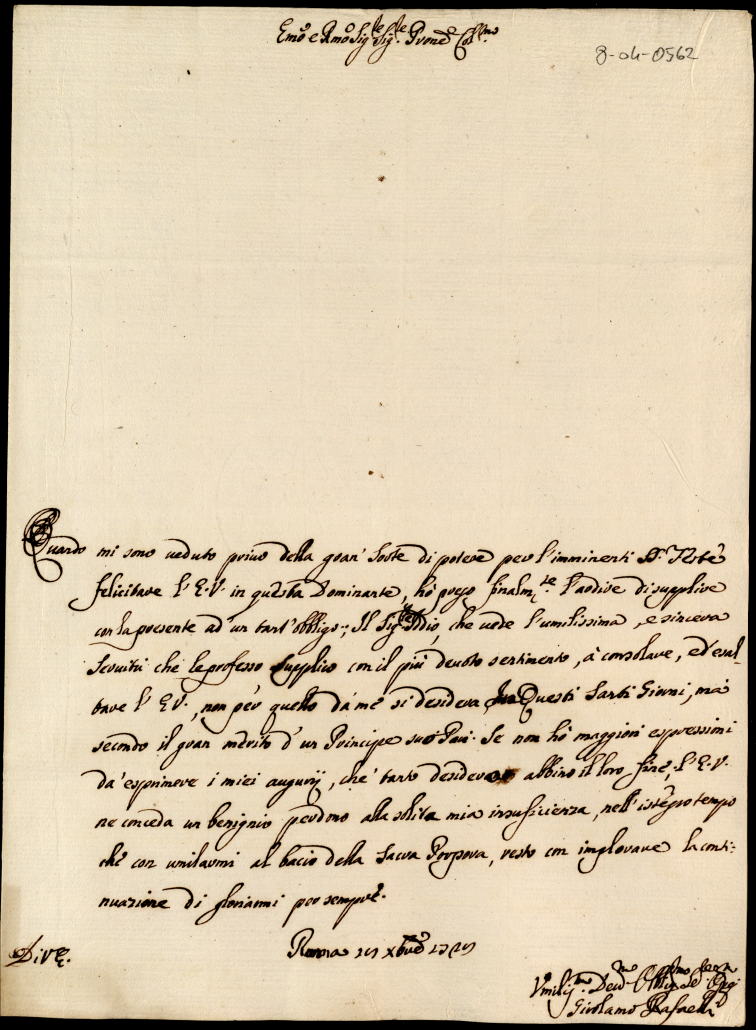 Emo e Rmo Sig.re Sig.re Prone Col.mo
8-04-0562
Quando mi sono ueduto priuo della gran' sorte di potere per l'imminenti S.te Feste
felicitare l'E.V. in questa Dominante, hò preso finalm.te l'ardire di supplire
con la presente ad un tant'obbligo; Il Sig.re Iddio, che uede l'umilissima, e sincera
seruitù che le professo supplico con il più deuoto sentimento, à consolare, ed'esal-
tare l'E.V., non per quello da mè si desidera in Questi Santi Giorni, mà
secondo il gran merito d'un Principe suo Pari. Se non hò maggiori espressioni
da' esprimere i miei augurij, che tanto desidero abbino il loro fine, l'E.V.
ne conceda un benignio perdono alla solita mia insuficienza, nell'istesso tempo
che con umilarmi al bacio della Sacra Porpora, resto con implorare la conti-
nuazione di gloriarmi per sempre.
Di V.E.
Roma xbre
Vmiliss.mo Deu.mo Obblig.mo Ser.re
Girolamo Rafaelli